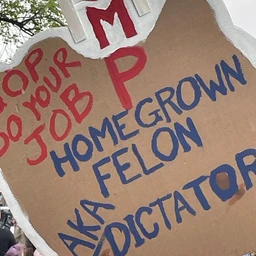 M
P
GOP
DO YOUR
JOB
HOMEGROWN
FELON
AKA
DICTATOR